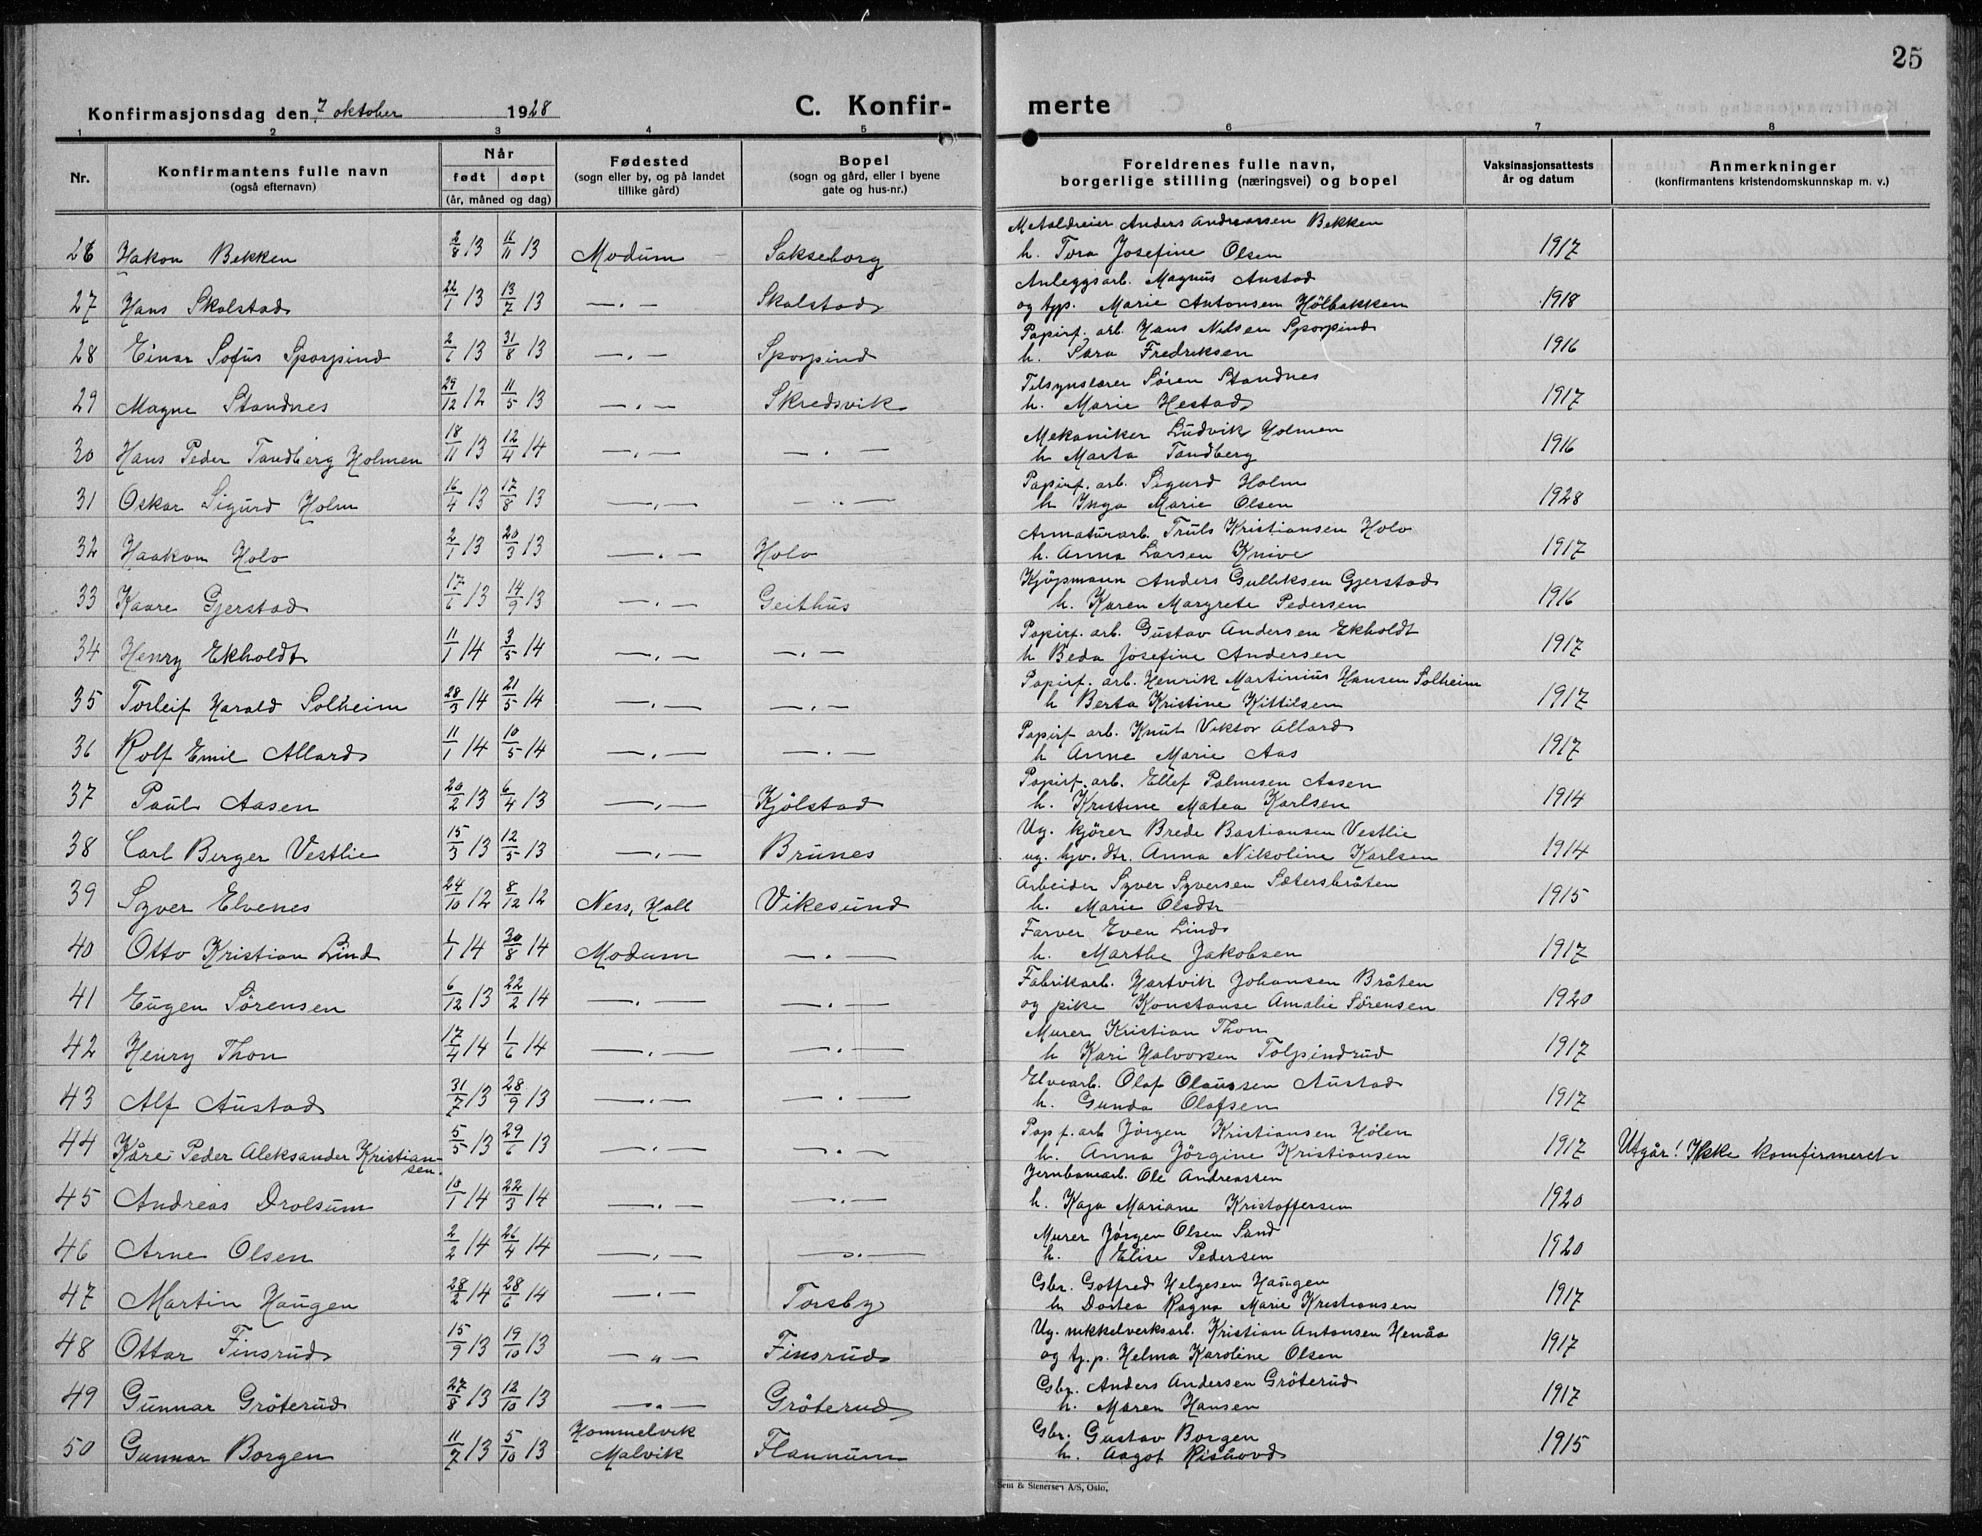 25
Konfirmasjonsdag den 7 oktober 1928
C. Konfirmerte
1 2 3 4 5 6 7 8
Nr. | Konfirmantens fulle navn (også efternavn) | Når født døpt (år, måned og dag) | Fødested (sogn eller by, og på landet tillike gård) | Bopel (sogn og gård, eller i byene gate og hus-nr.) | Foreldrenes fulle navn, borgerlige stilling (næringsvei) og bopel | Vaksinasjonsattests år og datum | Anmerkninger (konfirmantens kristendomskunnskap m. v.)
26 Hakon Bekken 2/8 13 11/11 13 Modum Sakseborg Metaldreier Anders Andreassen Bekken
h. Tora Josefine Olsen 1917
27 Hans Skalstad 22/1 13 13/7 13 —.— Skalstad Anleggsarb. Magnus Austad
og tjp. Marie Antonsen Hölbakken 1918
28 Einar Sofus Sporpind 2/1 13 31/8 13 —.— Sporpind Papirf. arb. Hans Nilsen Sporpind
h. Sara Fredriksen 1916
29 Magne Standnes 29/12 12 11/5 13 —.— Skredsvik Tilsynslærer Søren Standnes
h. Marie Hestad 1917
30 Hans Peder Tandberg Holmen 18/11 13 12/4 14 —.— —.— Mekaniker Ludvik Holmen
h Marta Tandberg 1916
31 Oskar Sigurd Holm 16/4 13 17/8 13 —.— —.— Papirf. arb. Sigurd Holm
h Inga Marie Olsen 1928
32 Haakon Holo 2/1 13 20/3 13 —.— Holo Armaturarb. Truls Kristiansen Holo
h. Anna Larsen Knive 1917
33 Kaare Gjerstad 17/6 13 14/9 13 —.— Geithus Kjøpmann Anders Gulliksen Gjerstad
h. Karen Margrete Pedersen 1916
34 Henry Ekholdt 11/1 14 3/5 14 —.— —.— Papirf. arb. Gustav Andersen Ekholdt
h Beda Josefine Andersen 1917
35 Torleif Harald Solheim 28/3 14 21/5 14 —.— —.— Papirf. arb. Henrik Martinius Hansen Solheim
h Berta Kristine Kittilsen 1917
36 Rolf Emil Allard 11/1 14 10/5 14 —.— —.— Papirf arb. Knut Viktor Allard
h Anne Marie Aas 1917
37 Paul Aasen 20/2 13 6/4 13 —.— Kjölstad Papirf. arb. Ellef Palmesen Aasen
h. Kristine Matea Karlsen 1914
38 Carl Berger Vestlie 15/3 13 12/5 13 —.— Brunes Ug. kjörer Brede Bastiansen Vestlie
ug. hjv. dtr. Anna Nikoline Karlsen 1914
39 Syver Elvenes 24/10 12 8/12 12 Ness, Hall Vikesund Arbeider Syver Syversen Sætersbråten
h. Marie Olsdtr 1915
40 Otto Kristian Lind 1/1 14 30/8 14 Modum —.— Farver Even Lind
h. Marthe Jakobsen 1917
41 Eugen Sørensen 6/12 13 22/2 14 —.— —.— Fabrikarb. Hartvik Johansen Bråten
og pike Konstanse Amalie Sørensen 1920
42 Henry Thon 17/4 14 1/6 14 —.— —.— Murer Kristian Thon
h Kari Halvorsen Tolpindrud 1917
43 Alf Austad 31/7 13 28/9 13 —.— —.— Elvearb. Olaf Olaussen Austad
h. Gunda Olafsen 1917
44 Kåre Peder Aleksander Kristiansen. 5/5 13 29/6 13 —.— —.— Pap f. arb Jörgen Kristiansen Hölen
h. Anna Jörgine Kristiansen 1917 Utgår! Ikke komfirmeret
45 Andreas Drolsum 10/1 14 22/3 14 —.— —.— Jernbanearb. Ole Andreassen
h. Kaja Mariane Kristoffersen 1920
46 Arne Olsen 2/2 14 26/4 14 —.— —.— Murer Jörgen Olsen Sand
h. Elise Pedersen 1920
47 Martin Haugen 28/2 14 28/6 14 —.— Torsby Gbr. Gotfred Helgesen Haugen
h Dortea Ragna Marie Kristiansen 1917
48 Ottar Finsrud 15/9 13 19/10 13 —„— Finsrud Ug. nikkelverksarb. Kristian Antonsen Henås
og tj.p. Helma Karoline Olsen 1917
49 Gunnar Gröterud 27/8 13 12/10 13 —„— Gröterud Gbr. Anders Andersen Gröterud
h. Maren Hansen 1917
50 Gunnar Borgen 11/7 13 5/10 13 Hommelvik Malvik Flannum Gbr. Gustav Borgen
h. Aagot Rishovd 1915
Sem & Stenersen A/S, Oslo.